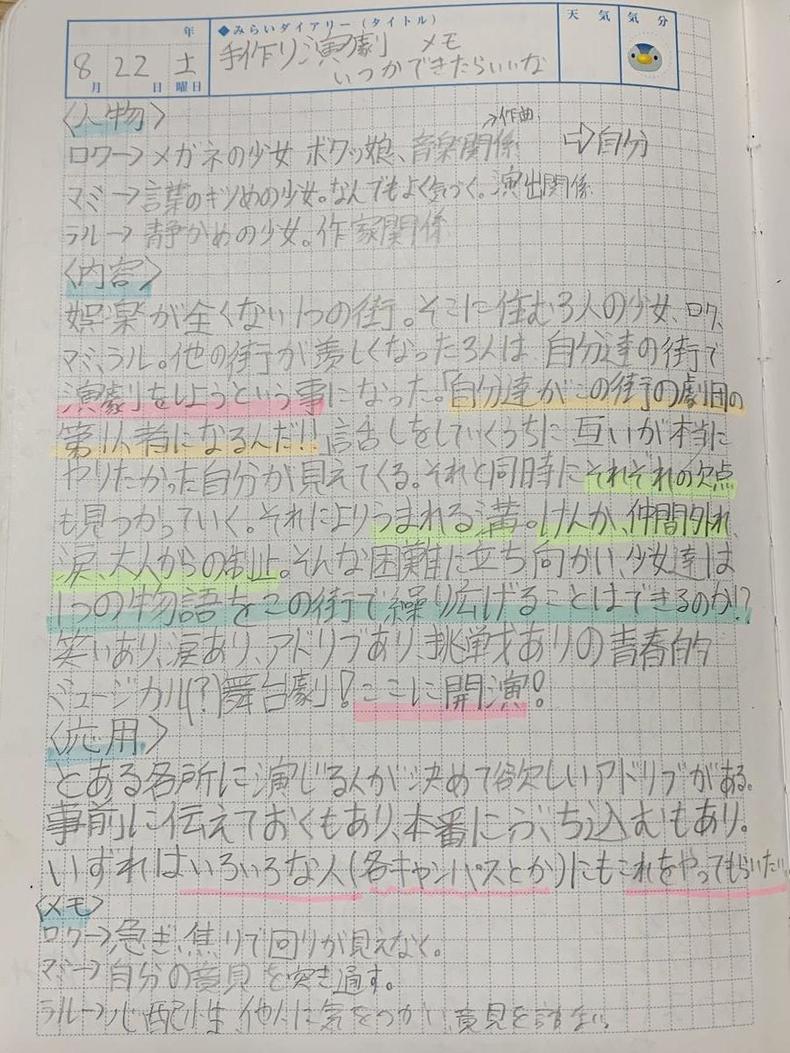 年
◆みらいダイアリー(タイトル)
天 気
気 分
8月 22日 土曜日
手作り演劇 メモ
いつかできたらいいな
〈人物〉
→作曲
ロク→メガネの少女 ボクッ娘、音楽関係 ⇨自分
マミ→言葉のキツめの少女。なんでもよく気づく。演出関係
ラル→静かめの少女。作家関係
〈内容〉
娯楽が全くない1つの街。そこに住む3人の少女、ロク、
マミ、ラル。他の街が羨しくなった3人は、自分達の街で
演劇をしようという事になった。「自分達がこの街の劇団の
第1人者になるんだ!!」話しをしていくうちに、互いが本当に
やりたかった自分が見えてくる。それと同時にそれぞれの欠点
も見つかっていく。それによりうまれる溝。けんか、仲間外れ、
涙、大人からの制止。そんな困難に立ち向かい、少女達は
1つの物語をこの街で繰り広げることはできるのか!?
笑いあり、涙あり、アドリブあり、挑戦ありの青春的
ミュージカル(?)舞台劇!ここに開演!
〈応用〉
とある各所に演じる人が決めて欲しいアドリブがある。
事前に伝えておくもあり、本番にぶち込むもあり。
いずれはいろいろな人(各キャンパスとか)にもこれをやってもらいたい
〈メモ〉
ロク→急ぎ、焦りで回りが見えなく。
マミ→自分の意見を突き通す。
ラル→心配性 他人に気をつかい意見を